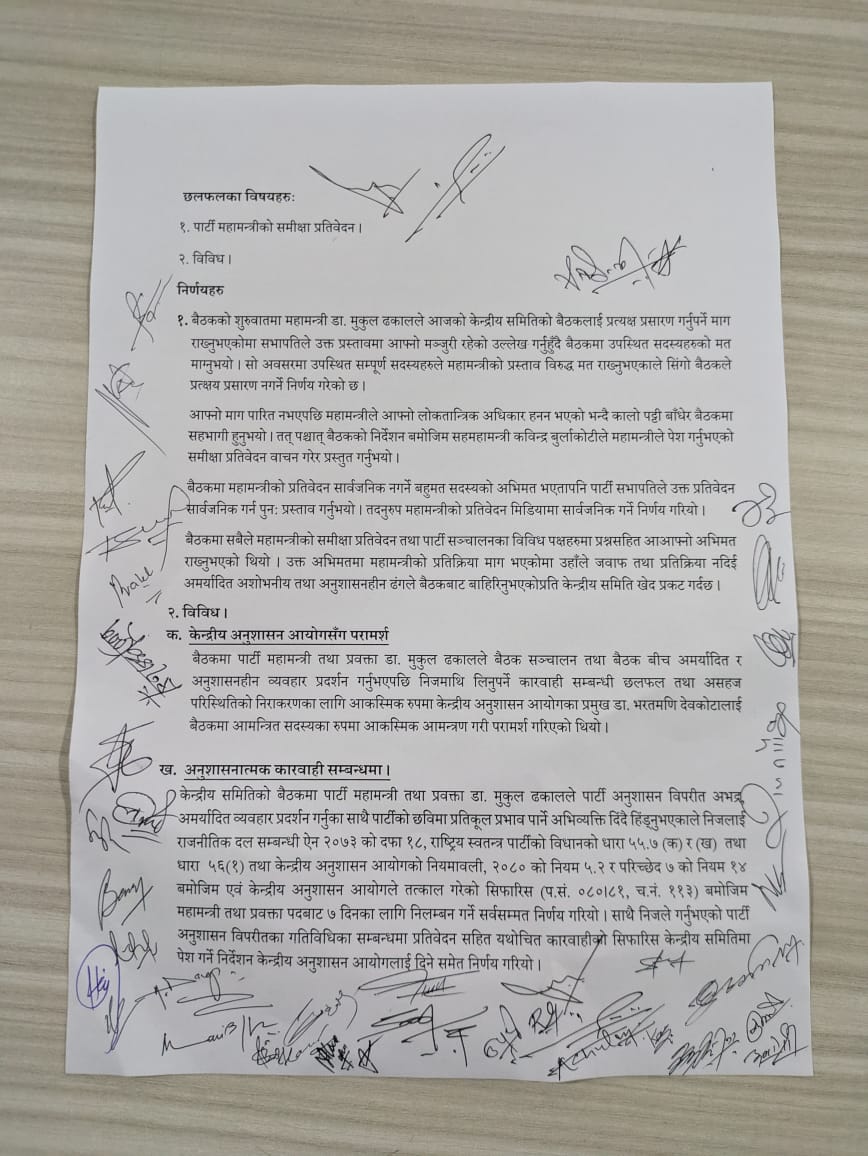 छलफलका विषयहरुः
१. पार्टी महामन्त्रीको समीक्षा प्रतिवेदन ।
२. विविध ।
निर्णयहरु
१. बैठकको शुरुवातमा महामन्त्री डा. मुकुल ढकालले आजको केन्द्रीय समितिको बैठकलाई प्रत्यक्ष प्रसारण गर्नुपर्ने माग
राख्नुभएकोमा सभापतिले उक्त प्रस्तावमा आफ्नो मञ्जुरी रहेको उल्लेख गर्नुहुँदै बैठकमा उपस्थित सदस्यहरुको मत
माग्नुभयो । सो अवसरमा उपस्थित सम्पूर्ण सदस्यहरुले महामन्त्रीको प्रस्ताव विरुद्ध मत राख्नुभएकाले सिंगो बैठकले
प्रत्क्षय प्रसारण नगर्ने निर्णय गरेको छ ।
आफ्नो माग पारित नभएपछि महामन्त्रीले आफ्नो लोकतान्त्रिक अधिकार हनन भएको भन्दै कालो पट्टी बाँधेर बैठकमा
सहभागी हुनुभयो । तत् पश्चात् बैठकको निर्देशन बमोजिम सहमहामन्त्री कविन्द्र बुर्लाकोटीले महामन्त्रीले पेश गर्नुभएको
समीक्षा प्रतिवेदन वाचन गरेर प्रस्तुत गर्नुभयो ।
बैठकमा महामन्त्रीको प्रतिवेदन सार्वजनिक नगर्ने बहुमत सदस्यको अभिमत भएतापनि पार्टी सभापतिले उक्त प्रतिवेदन
सार्वजनिक गर्न पुनः प्रस्ताव गर्नुभयो । तदनुरुप महामन्त्रीको प्रतिवेदन मिडियामा सार्वजनिक गर्ने निर्णय गरियो ।
बैठकमा सबैले महामन्त्रीको समीक्षा प्रतिवेदन तथा पार्टी सञ्चालनका विविध पक्षहरुमा प्रश्नसहित आआफ्नो अभिमत
राख्नुभएको थियो । उक्त अभिमतमा महामन्त्रीको प्रतिक्रिया माग भएकोमा उहाँले जवाफ तथा प्रतिक्रिया नदिई
अमर्यादित अशोभनीय तथा अनुशासनहीन ढंगले बैठकबाट बाहिरिनुभएकोप्रति केन्द्रीय समिति खेद प्रकट गर्दछ ।
२. विविध ।
क. केन्द्रीय अनुशासन आयोगसँग परामर्श
बैठकमा पार्टी महामन्त्री तथा प्रवक्ता डा. मुकुल ढकालले बैठक सञ्चालन तथा बैठक बीच अमर्यादित र
अनुशासनहीन व्यवहार प्रदर्शन गर्नुभएपछि निजमाथि लिनुपर्ने कारवाही सम्बन्धी छलफल तथा असहज
परिस्थितिको निराकरणका लागि आकस्मिक रुपमा केन्द्रीय अनुशासन आयोगका प्रमुख डा. भरतमणि देवकोटालाई
बैठकमा आमन्त्रित सदस्यका रुपमा आकस्मिक आमन्त्रण गरी परामर्श गरिएको थियो ।
ख. अनुशासनात्मक कारवाही सम्बन्धमा ।
केन्द्रीय समितिको बैठकमा पार्टी महामन्त्री तथा प्रवक्ता डा. मुकुल ढकालले पार्टी अनुशासन विपरीत अभद्र
अमर्यादित व्यवहार प्रदर्शन गर्नुका साथै पार्टीको छविमा प्रतिकूल प्रभाव पार्ने अभिव्यक्ति दिंदै हिंड्नुभएकाले निजलाई
राजनीतिक दल सम्बन्धी ऐन २०७३ को दफा १८, राष्ट्रिय स्वतन्त्र पार्टीको विधानको धारा ५५.७ (क) र (ख) तथा
धारा ५६(१) तथा केन्द्रीय अनुशासन आयोगको नियमावली, २०८० को नियम ५.२ र परिच्छेद ७ को नियम १४
बमोजिम एवं केन्द्रीय अनुशासन आयोगले तत्काल गरेको सिफारिस (प.सं. ०८०।८१, च.नं. ११३) बमोजिम
महामन्त्री तथा प्रवक्ता पदबाट ७ दिनका लागि निलम्बन गर्ने सर्वसम्मत निर्णय गरियो । साथै निजले गर्नुभएको पार्टी
अनुशासन विपरीतका गतिविधिका सम्बन्धमा प्रतिवेदन सहित यथोचित कारवाहीको सिफारिस केन्द्रीय समितिमा
पेश गर्ने निर्देशन केन्द्रीय अनुशासन आयोगलाई दिने समेत निर्णय गरियो ।